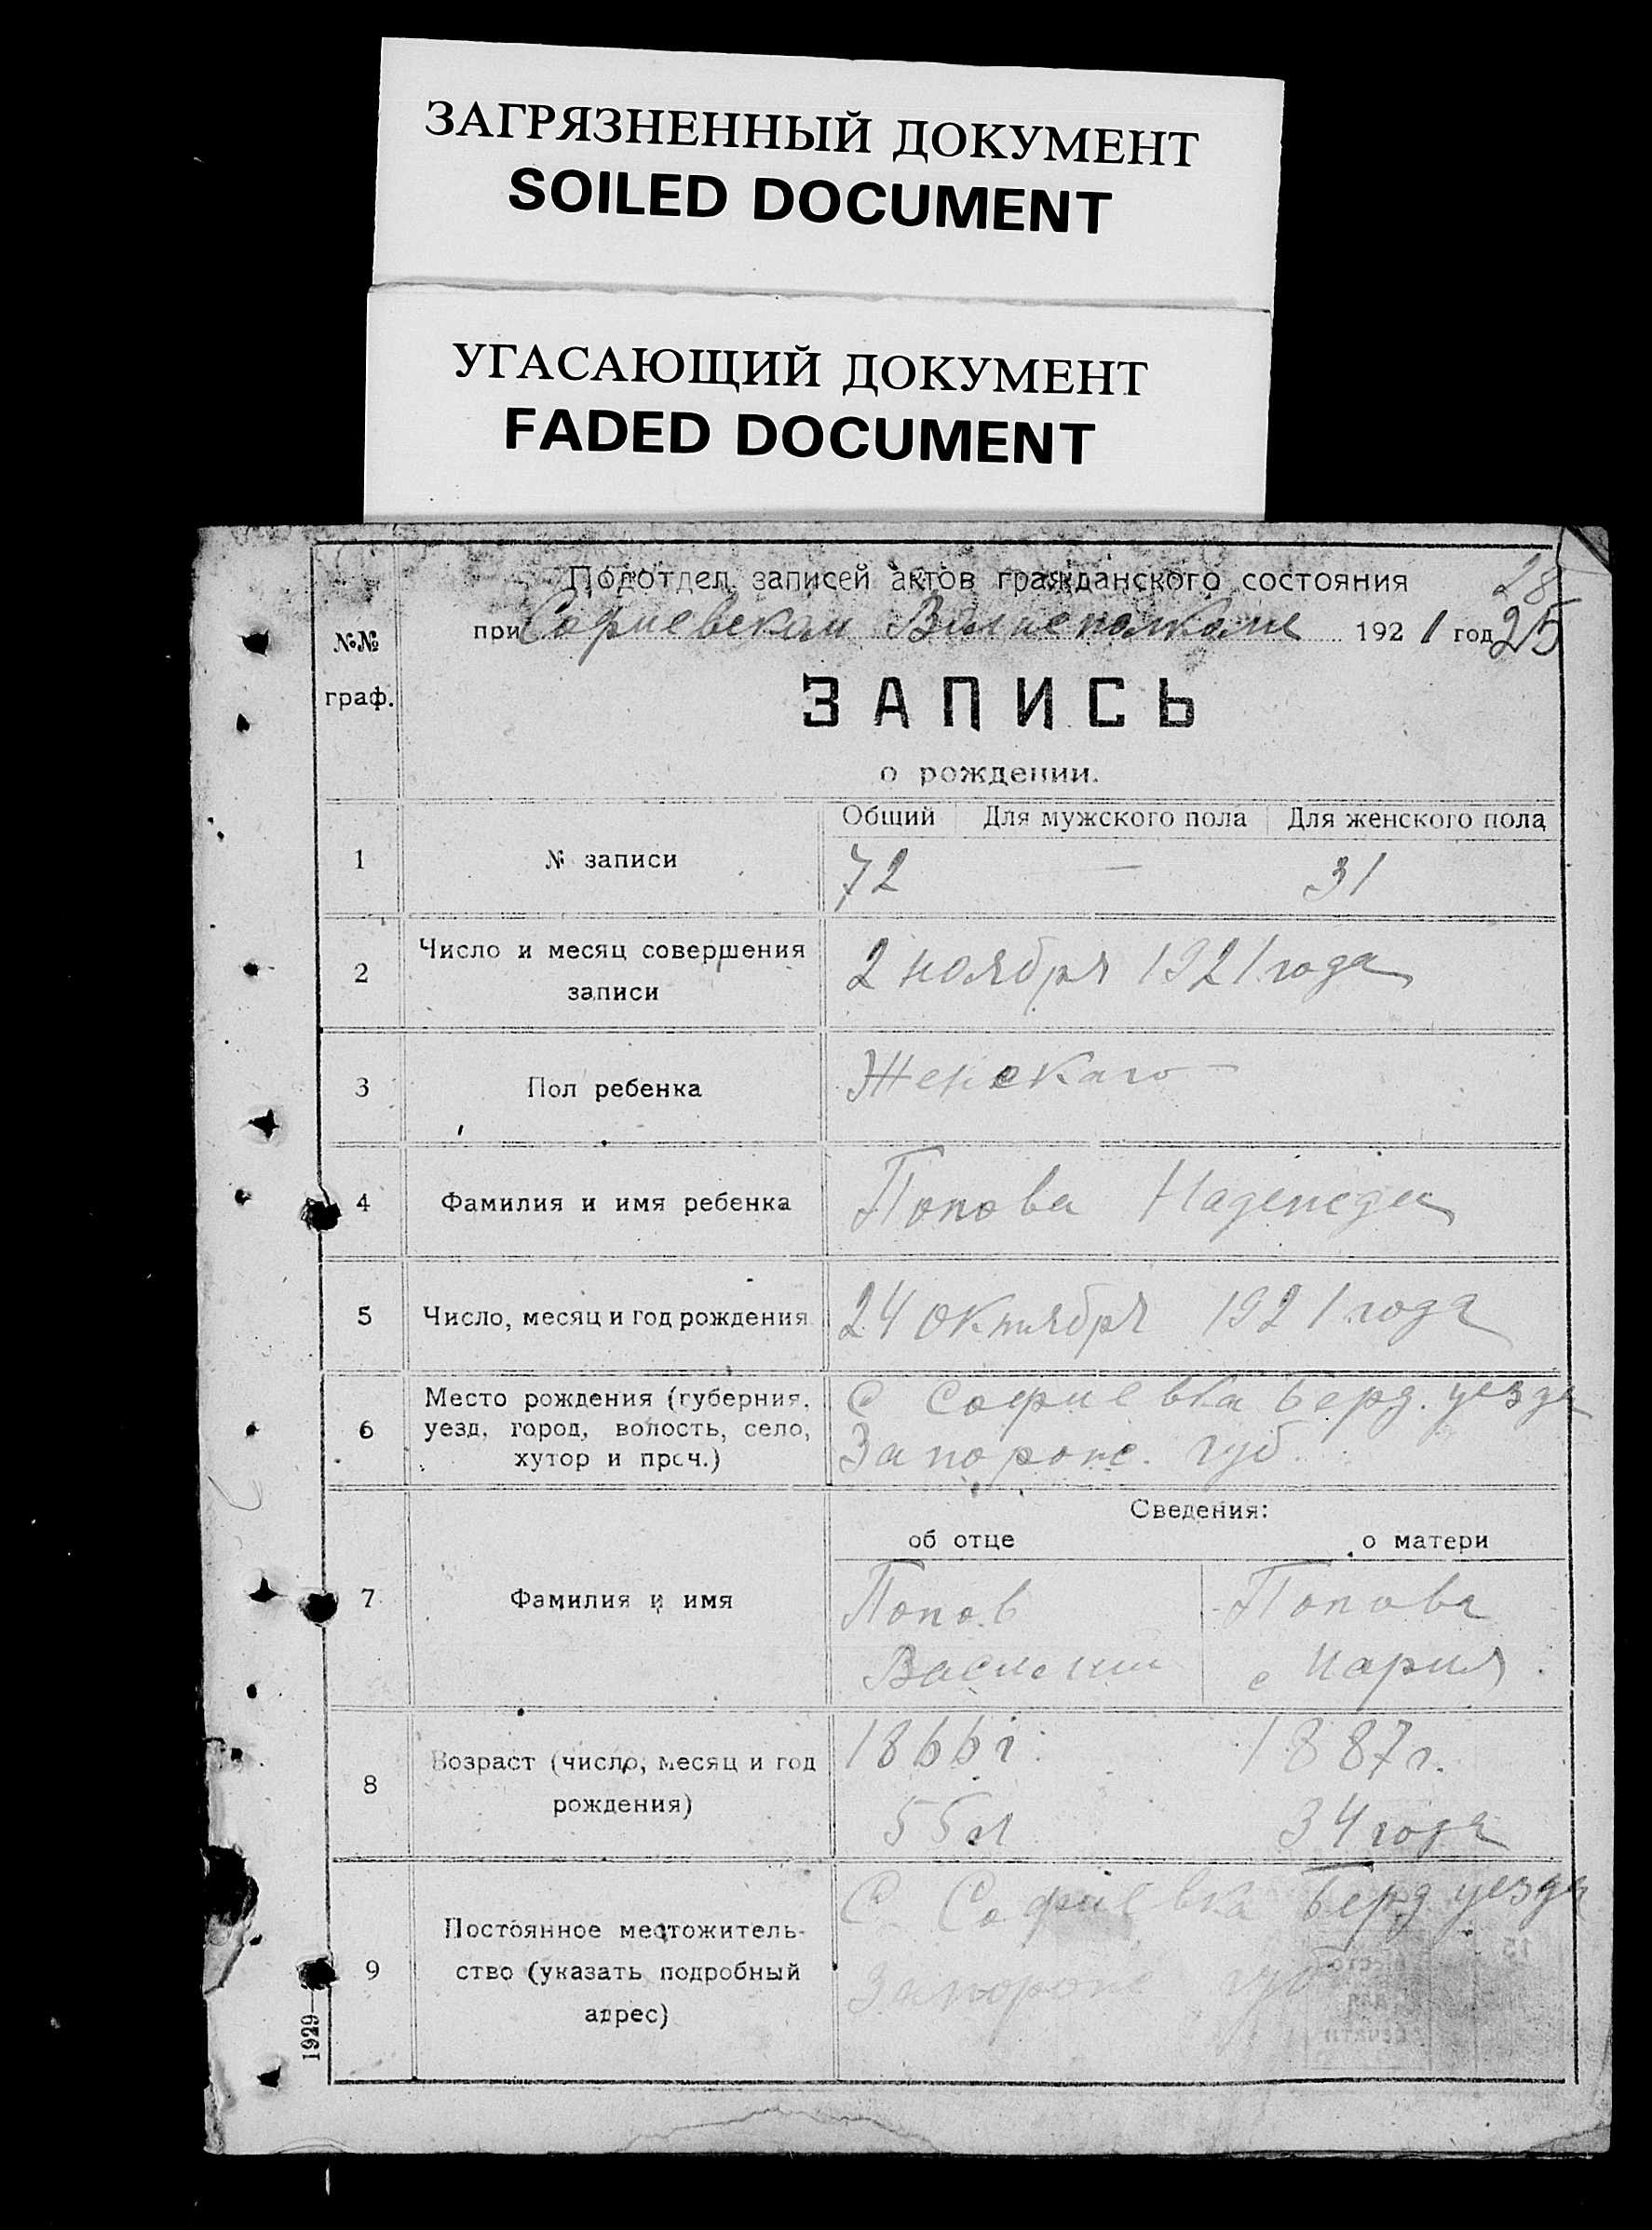 ЗАГРЯЗНЕННЫЙ ДОКУМЕНТ
SOILED DOCUMENT
УГАСАЮЩИЙ ДОКУМЕНТ
FADED DOCUMENT
28
Подотдел записей актов гражданского состояния
при Софиевском Волисполкоме 1921 год 25
№№
граф.
ЗАПИСЬ
о рождении.
Общий Для мужского пола Для женского пола
1 № записи 72 — 31
2 Число и месяц совершения
записи
2 ноября 1921 года
3 Пол ребенка Женскаго
4 Фамилия и имя ребенка Попова Надежда
5 Число, месяц и год рождения 24 октября 1921 года
6 Место рождения (губерния,
уезд, город, волость, село,
хутор и проч.)
С Софиевка Берд. уезда
Запорож. губ.
Сведения:
об отце о матери
7 Фамилия и имя
Попов Попова
Василий Мария
8 Возраст (число, месяц и год
рождения)
1866 г. 1887 г.
55 л 34 года
9 Постоянное местожитель-
ство (указать подробный
адрес)
С Софиевка Берд уезда
Запорож губ
15
Место
для
печати
1929